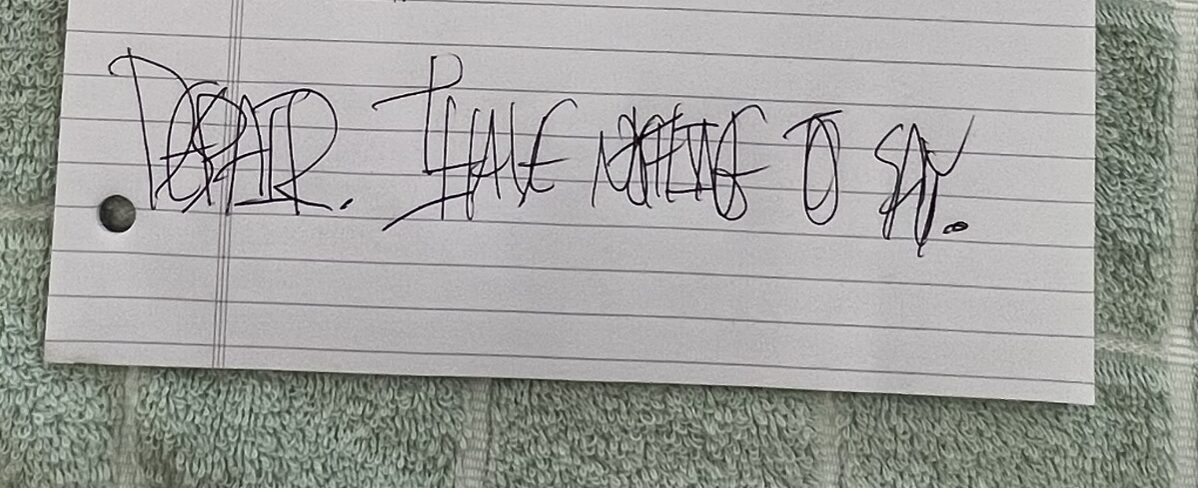 DESPAIR. I HAVE NOTHING TO SAY.